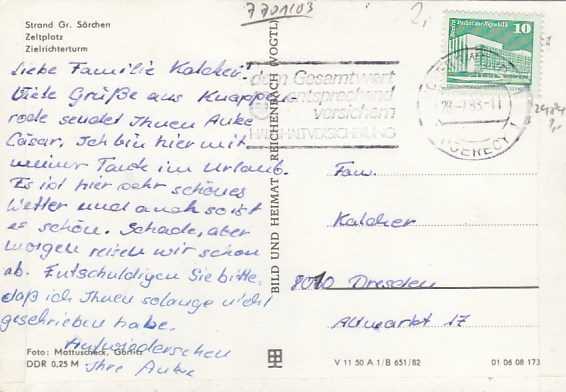 7701103
2,
Strand Gr. Särchen
Zeltplatz
Zielrichterturm
Berlin, Palast der Republik 10
DDR
Liebe Familie Kalcher!
Viele Grüße aus Knappen-
rode sendet Ihnen Auke
Cäsar. Ich bin hier mit
meiner Tante im Urlaub.
Es ist hier sehr schönes
Wetter und auch so ist
es schön. Schade, aber
morgen reisen wir schon
ab. Entschuldigen Sie bitte,
daß ich Ihnen solange nicht
geschrieben habe.
Aufwiederschen
Ihre Auke
dem Gesamtwert
entsprechend
versichern
HAUSHALTVERSICHERUNG
BILD UND HEIMAT REICHENBACH (VOGTL)
Fam.
Kalcher
8010 Dresden
Altmarkt 17
Foto: Mattuscheck, Görlitz
DDR 0,25 M
V 11 50 A 1/B 651/82
01 06 08 173